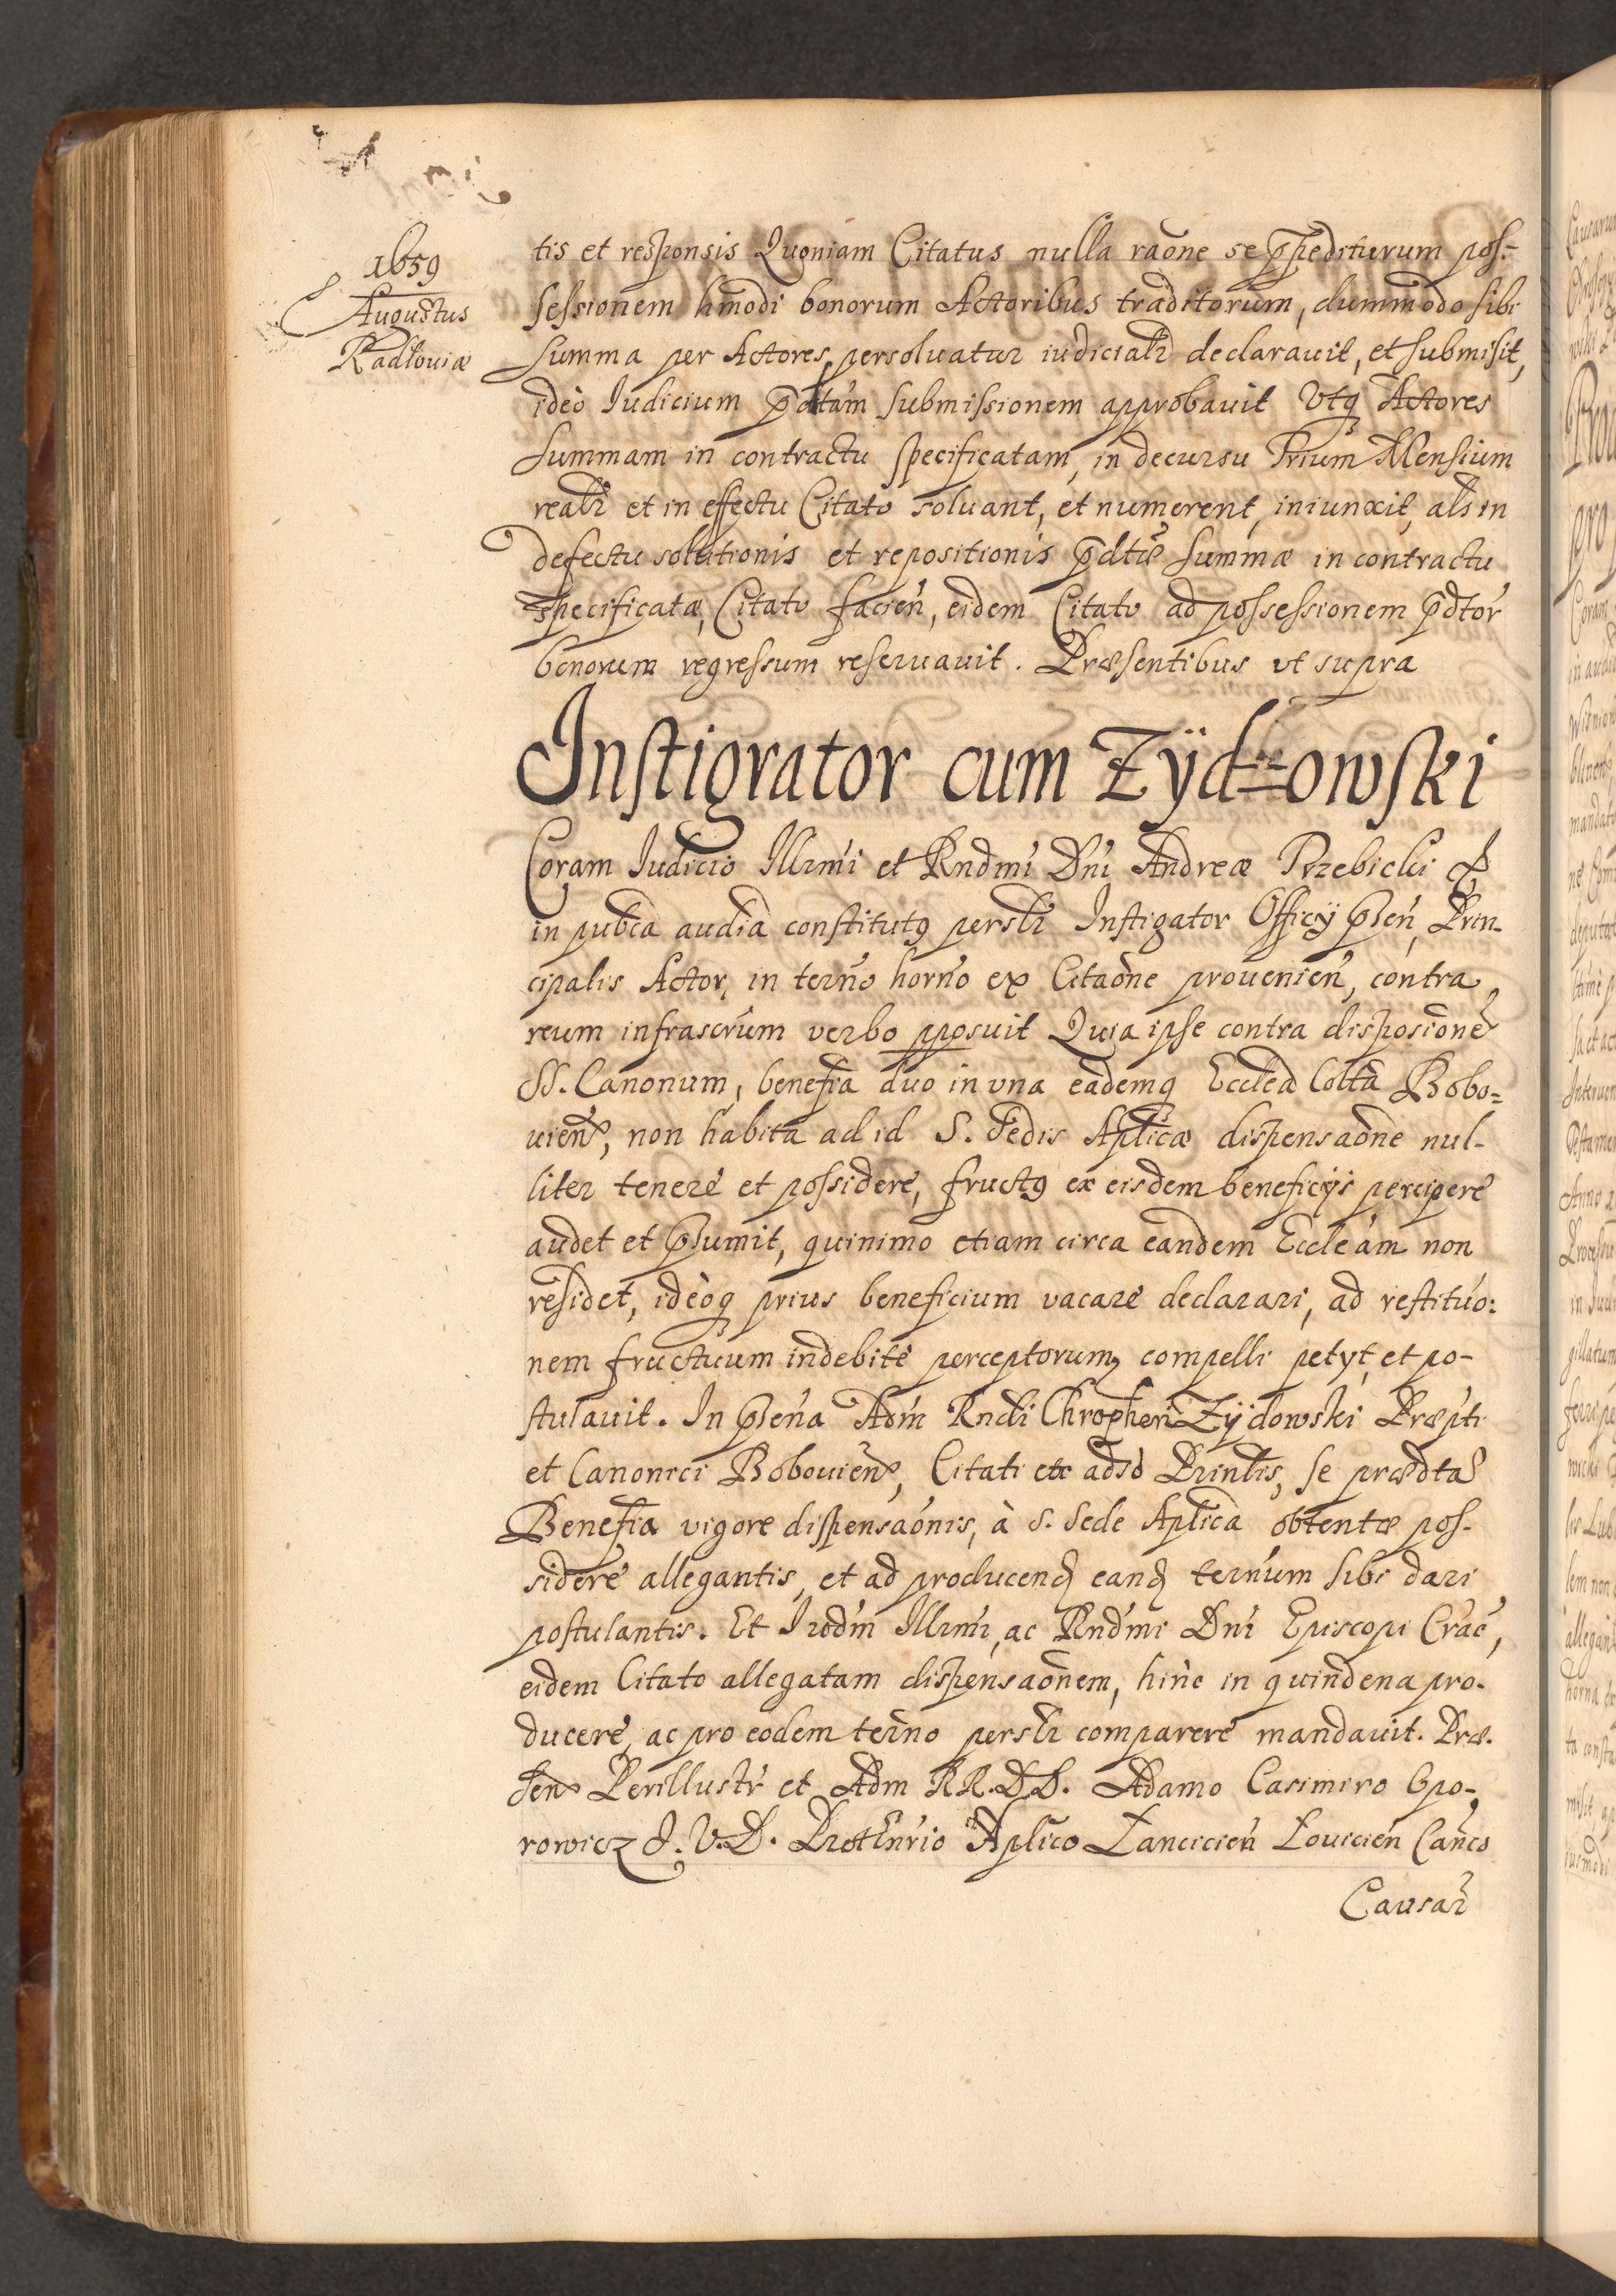 1659
Augustus
Radłouiæ
tis et responsis Quoniam Citatus nulla raõne se p̃pediturum pos-
sessionem hmõdi bonorum Actoribus traditorum, dummodo sibi
summa per Actores persoluatur iudicialr declarauit, et submisit,
ideò Iudicium p̃dtam submissionem approbauit Vtq Actores
summam in contractu specificatam, in decursu Trium Mensium
realr et in effectu Citato soluant, et numerent, iniunxit, als in
defectu solutionis et repositionis p̃dtæ summæ in contractu
specificatæ, Citato facień, eidem Citato ad possessionem p̃dtor
bonorum regressum reseruauit. Præsentibus vt supra
Instigrator cum Zÿd=owski
Coram Iudicio Illrmi et Rndmi Dni Andreæ Trzebicki &
in pubca audia constitutq persłr Instigator Officÿ p̃sen, Prin-
cipalis Actor, in terño horño ex Citaõne prouenień, contra
reum infrascrum verbo pposuit Quia ipse contra disposione
SS. Canonum, benefia duo in vna eademq Eccleã Collta Bobo=
uień, non habita ad id S. Sedis Aplicæ dispensaõne nul-
liter tenere et possidere, fructq ex eisdem beneficÿs percipere
audet et p̃sumit, quinimo etiam circa eandem Eccleam non
residet, ideòq prius beneficium vacare declarari, ad restitúo:
nem fructuum indebitè perceptorum, compelli petyt, et po-
stulauit. In p̃seña Adm Rndi Chropheri Zÿdowski Præpti
et Canonici Bobouień, Citati etc adsd Prinlis, se prædta
Benefia vigore dispensaõnis, à S. Sede Aplica obtentæ pos-
sidere allegantis, et ad producend eand ternum sibi dari
postulantis. Et Iudm Illrmi, ac Rndmi Dni Episcopi Crac,
eidem Citato allegatam dispensaõnem, hinc in quindena pro-
ducere, ac pro eodem terno persłr comparere mandauit. Præ-
sen Perillustr et Adm RR. DD. Adamo Casimiro Opo-
rowicz I. V. D. Protnrio Aplico Lancicień Louicień Cañco
Causar